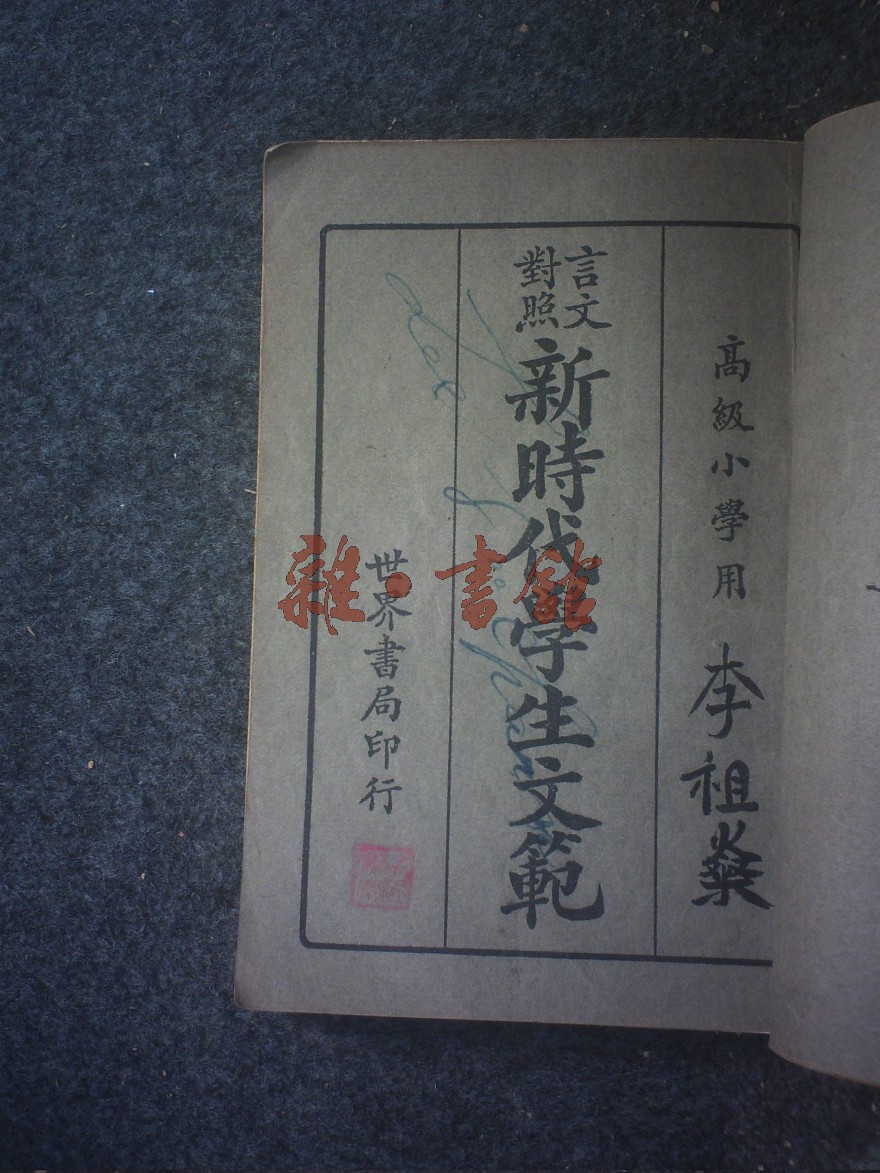 高級小學用
李祖
言文
對照
新時代學生文範
世界書局印行
Lee
雜·書館